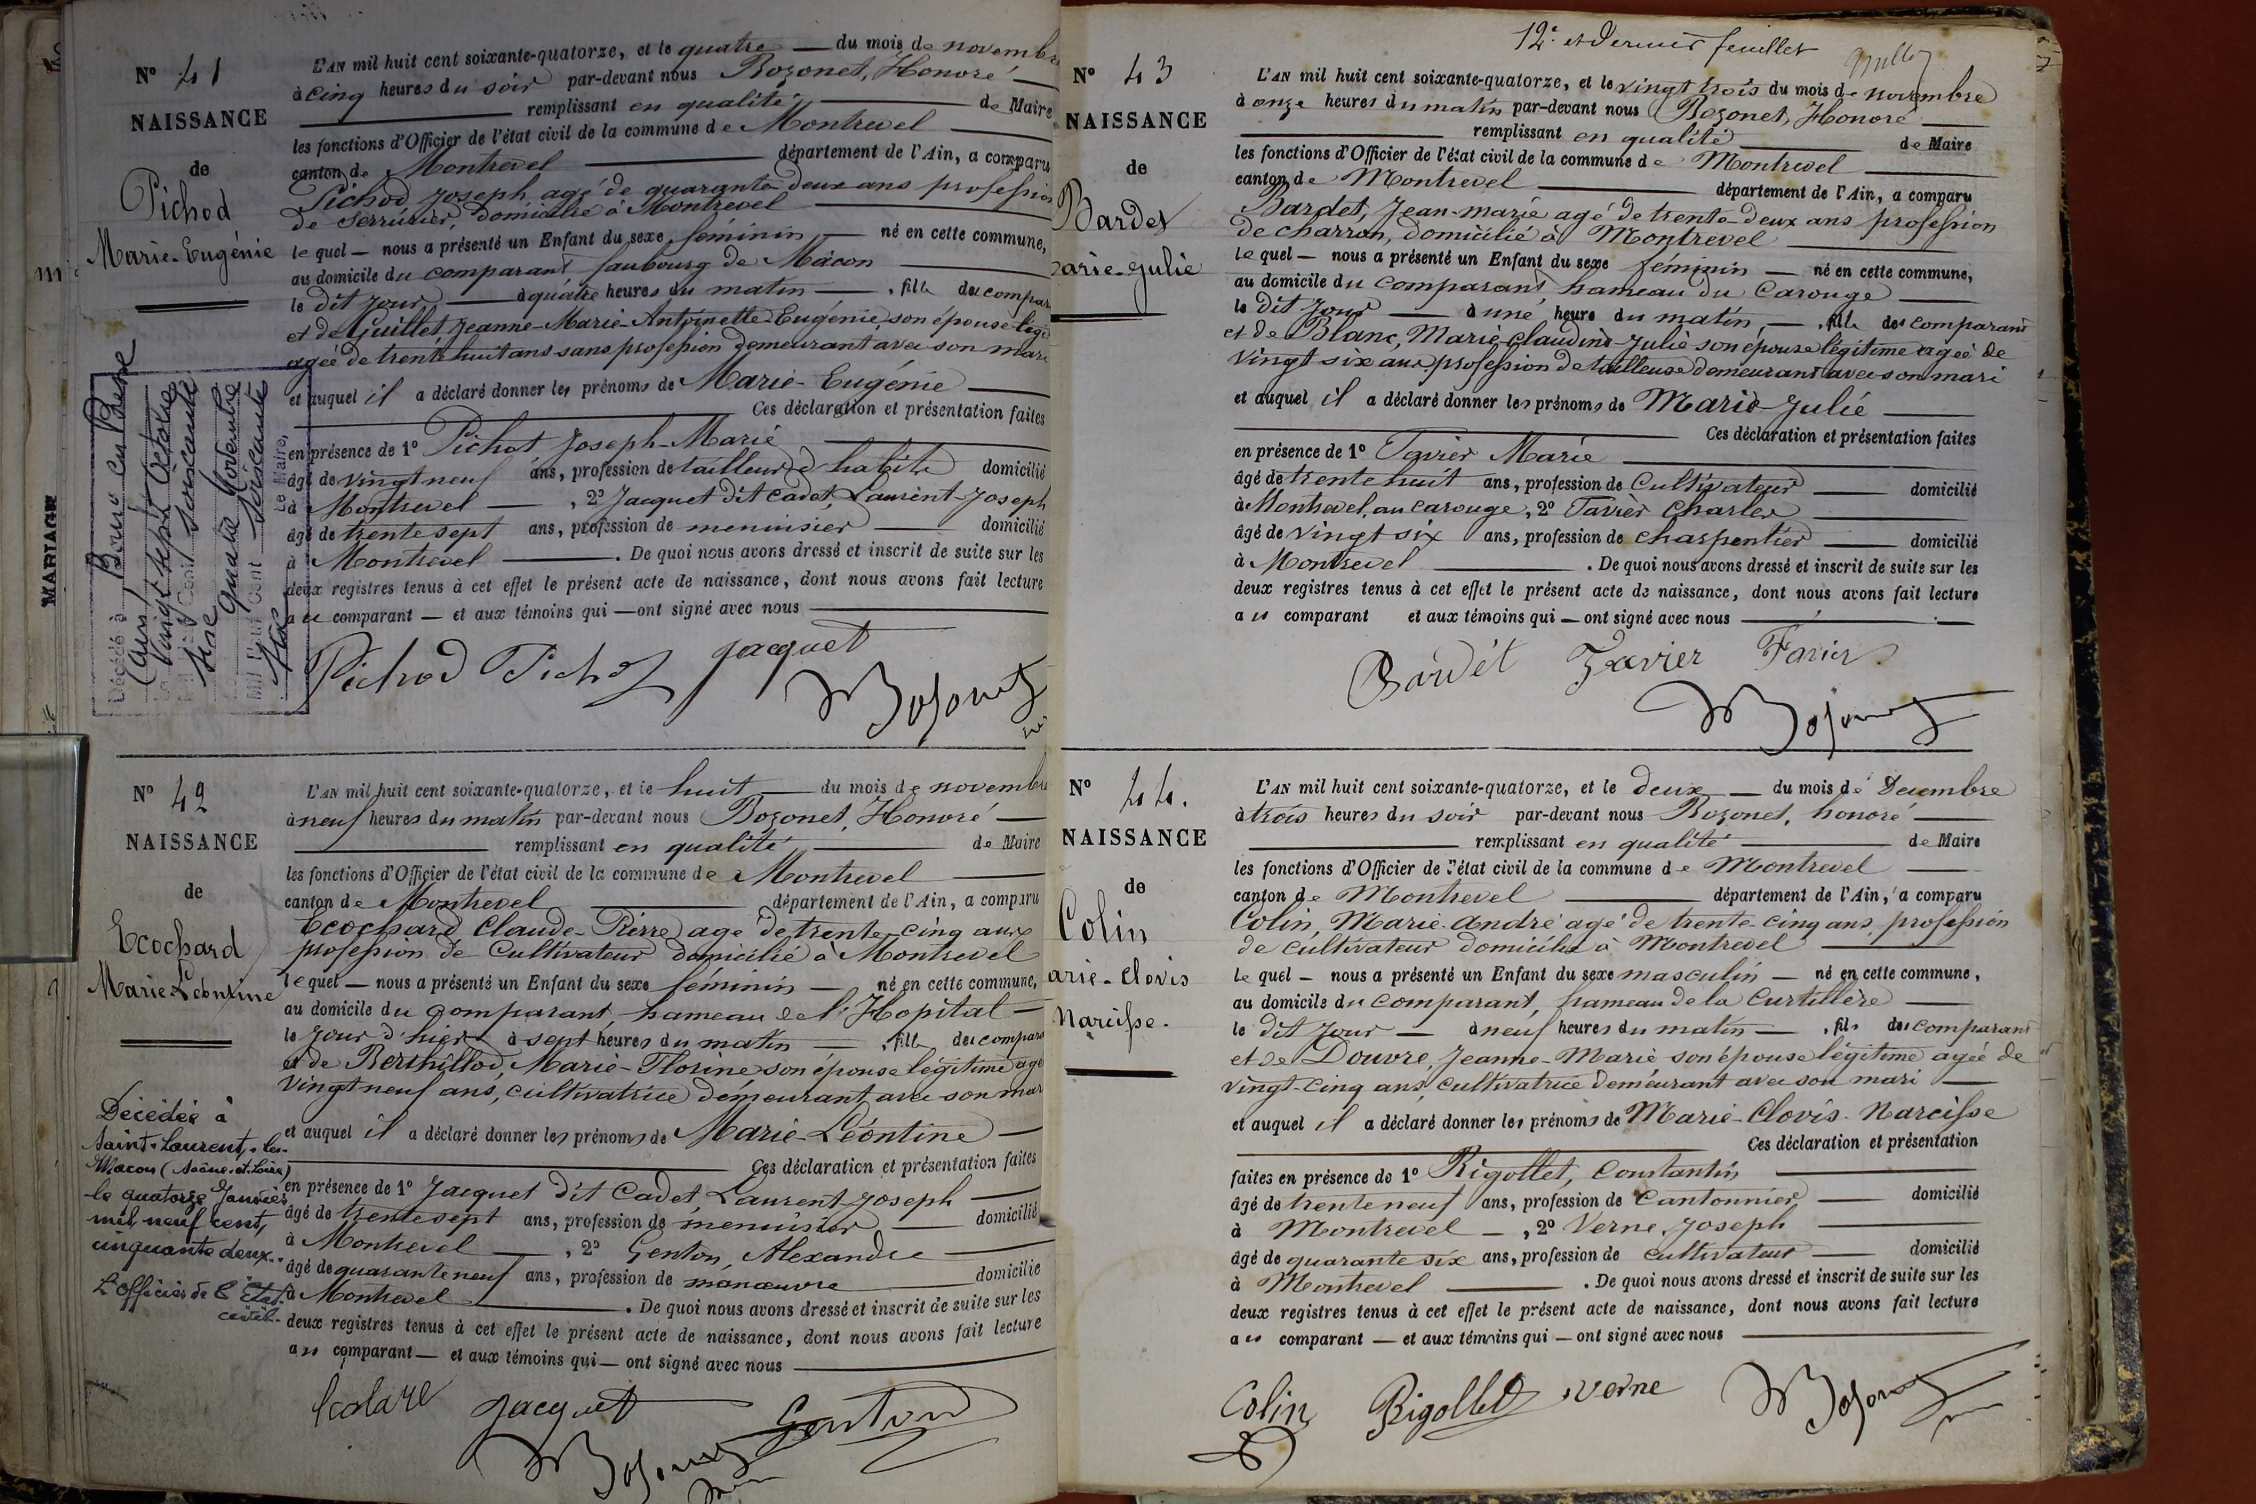 N° 41
NAISSANCE
de
Pichod
Marie-Eugénie
L'AN mil huit cent soixante-quatorze, et le quatre du mois de novembre
à cinq heures du soir par-devant nous Bozonet, Honoré
remplissant en qualité de Maire
les fonctions d'Officier de l'état civil de la commune de Montrevel
canton de Montrevel département de l'Ain, a comparu
Pichod Joseph, agé de quarante deux ans profession
de Serrurier, domicilié à Montrevel
lequel nous a présenté un Enfant du sexe féminin né en cette commune,
au domicile du comparant faubourg de Mâcon
le dit jour, à quatre heures du matin, fille du compar
et de Guillet, Jeanne-Marie-Antoinette-Eugénie, son épouse lég
agée de trente huit ans sans profession demeurant avec son mari
et auquel il a déclaré donner les prénoms de Marie-Eugénie
Ces déclaration et présentation faites
en présence de 1° Pichot Joseph-Marie
âgé de vingt neuf ans, profession de tailleur d'habits domicilié
à Montrevel, 2° Jacquet dit Cadet, Laurent-Joseph
âgé de trente sept ans, profession de menuisier domicilié
à Montrevel. De quoi nous avons dressé et inscrit de suite sur les
deux registres tenus à cet effet le présent acte de naissance, dont nous avons fait lecture
au comparant et aux témoins qui ont signé avec nous
Pichod Pichot Jacquet
Bozonet
Décédé à Bourg en Bresse
(Ain)
le vingt sept Octobre
Mil neuf Cent soixante
quatre Novembre
Mil Cent soixante
Le Maire,
MARIAGE
N° 42
NAISSANCE
de
Ecochard
Marie-Léontine
L'AN mil huit cent soixante-quatorze, et le huit du mois de novembre
à neuf heures du matin par-devant nous Bozonet, Honoré
remplissant en qualité de Maire
les fonctions d'Officier de l'état civil de la commune de Montrevel
canton de Montrevel département de l'Ain, a comparu
Ecochard Claude-Pierre agé de trente-cinq ans
profession de Cultivateur domicilié à Montrevel
lequel nous a présenté un Enfant du sexe féminin né en cette commune,
au domicile du comparant, hameau de l'Hopital
le jour d'hier à sept heures du matin, fille du compara
et de Berthillod, Marie-Florine son épouse légitime agé
vingt neuf ans, cultivatrice demeurant avec son mar
et auquel il a déclaré donner les prénoms de Marie-Léontine
Ces déclaration et présentation faites
en présence de 1° Jacquet dit Cadet, Laurent-Joseph
âgé de trente sept ans, profession de menuisier domicilié
à Montrevel, 2° Genton, Alexandre
âgé de quarante neuf ans, profession de manœuvre domicilié
à Montrevel. De quoi nous avons dressé et inscrit de suite sur les
deux registres tenus à cet effet le présent acte de naissance, dont nous avons fait lecture
au comparant et aux témoins qui ont signé avec nous
Jacquet Genton
Bozonet
Décédée à
Saint-Laurent-les-
Macon (Saône-et-Loire)
le quatorze Janvier
mil neuf cent,
cinquante deux..
L'officier de l'Etat
civil.
12e et dernier feuillet
N° 43
NAISSANCE
de
Bardet
arie-Julie
L'AN mil huit cent soixante-quatorze, et le vingt trois du mois de novembre
à onze heures du matin par-devant nous Bozonet, Honoré
remplissant en qualité de Maire
les fonctions d'Officier de l'état civil de la commune de Montrevel
canton de Montrevel département de l'Ain, a comparu
Bardet, Jean-Marie agé de trente-deux ans profession
de charron, domicilié à Montrevel
lequel nous a présenté un Enfant du sexe féminin né en cette commune,
au domicile du comparant, hameau du Carouge
le dit jour à une heure du matin, fille du comparant
et de Blanc, Marie-Claudine-Julie son épouse légitime agée de
vingt six ans profession de tailleuse demeurant avec son mari
et auquel il a déclaré donner les prénoms de Marie-Julie
Ces déclaration et présentation faites
en présence de 1° Favier Marie
âgé de trente huit ans, profession de Cultivateur domicilié
à Montrevel, au carouge, 2° Favier Charles
âgé de vingt six ans, profession de charpentier domicilié
à Montrevel. De quoi nous avons dressé et inscrit de suite sur les
deux registres tenus à cet effet le présent acte de naissance, dont nous avons fait lecture
au comparant et aux témoins qui ont signé avec nous
Bardet Favier Favier
Bozonet
N° 44.
NAISSANCE
de
Colin
arie-Clovis
Narcisse.
L'AN mil huit cent soixante-quatorze, et le deux du mois de Decembre
à trois heures du soir par-devant nous Bozonet, honoré
remplissant en qualité de Maire
les fonctions d'Officier de l'état civil de la commune de Montrevel
canton de Montrevel département de l'Ain, a comparu
Colin, Marie-André agé de trente-cinq ans, profession
de cultivateur domicilié à Montrevel
lequel nous a présenté un Enfant du sexe masculin né en cette commune,
au domicile du comparant, hameau de la Curtillère
le dit jour à neuf heures du matin, fils du comparant
et de Douvre, Jeanne-Marie son épouse légitime agée de
vingt-cinq ans, cultivatrice demeurant avec son mari
et auquel il a déclaré donner les prénoms de Marie-Clovis-Narcisse
Ces déclaration et présentation
faites en présence de 1° Rigollet, Constantin
âgé de trente neuf ans, profession de Cantonnier domicilié
à Montrevel, 2° Verne, Joseph
âgé de quarante six ans, profession de cultivateur domicilié
à Montrevel. De quoi nous avons dressé et inscrit de suite sur les
deux registres tenus à cet effet le présent acte de naissance, dont nous avons fait lecture
au comparant et aux témoins qui ont signé avec nous
Colin Rigollet Verne Bozonet